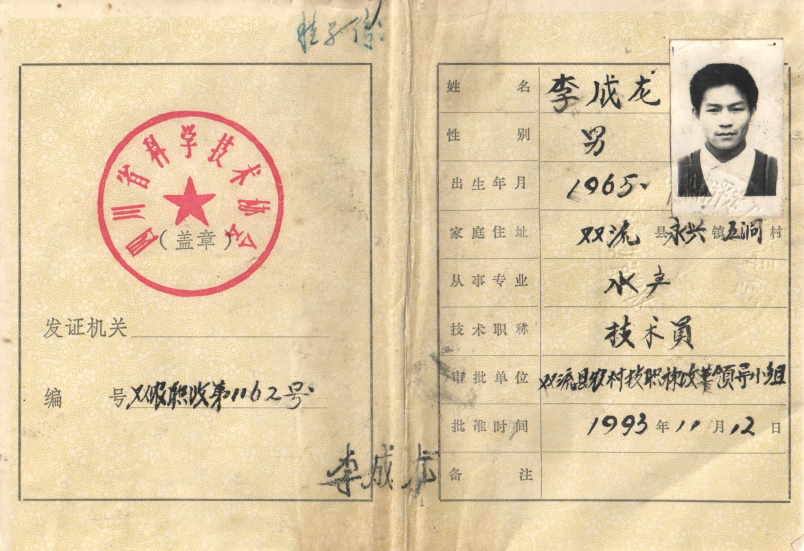 四川省科学技术协会
（盖章）
发证机关
编 号 双农职改第1162号
李成龙
姓 名 李成龙
性 别 男
出生年月 1965.
家庭住址 双流县永兴镇五洞村
从事专业 水产
技术职称 技术员
审批单位 双流县农村技职称改革领导小组
批准时间 1993年11月12日
备 注